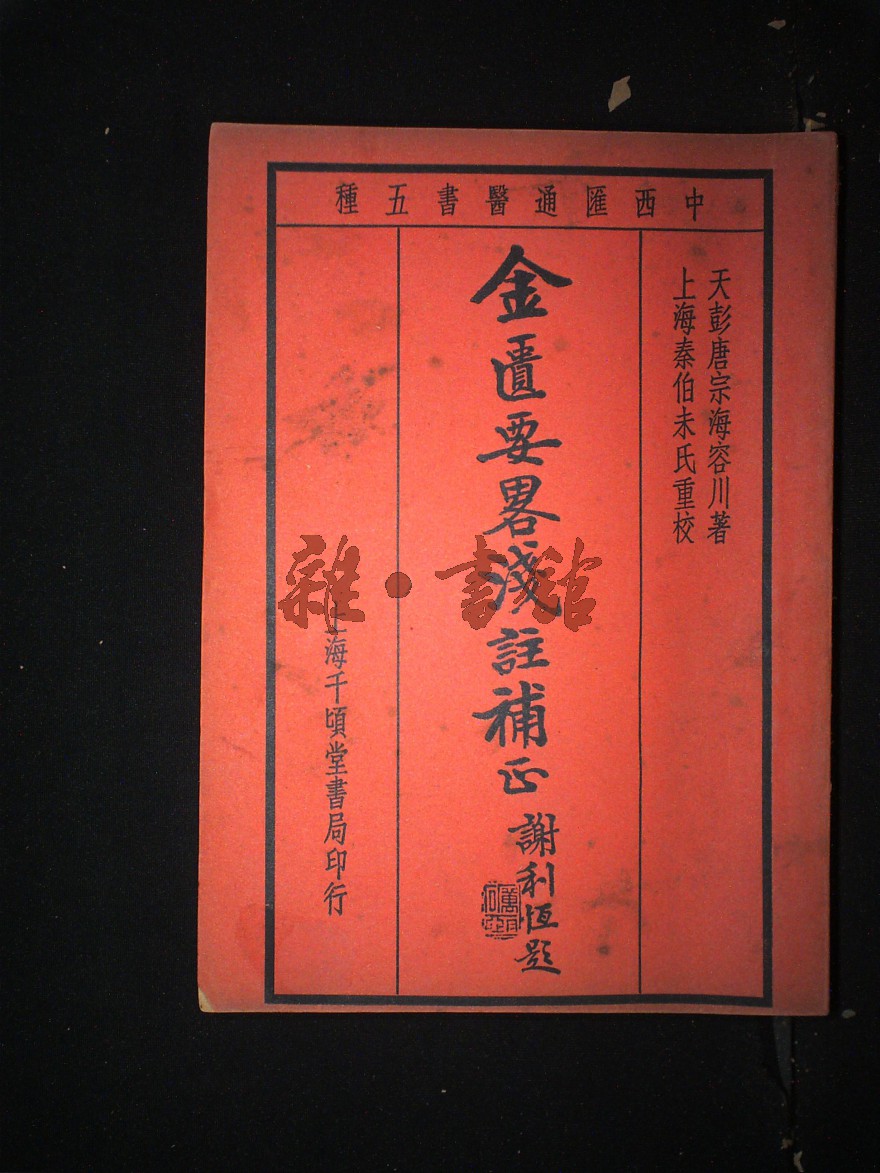 中西匯通醫書五種
天彭唐宗海容川著
上海秦伯未氏重校
金匱要畧淺註補正
謝利恆題
上海千頃堂書局印行
雜·書館